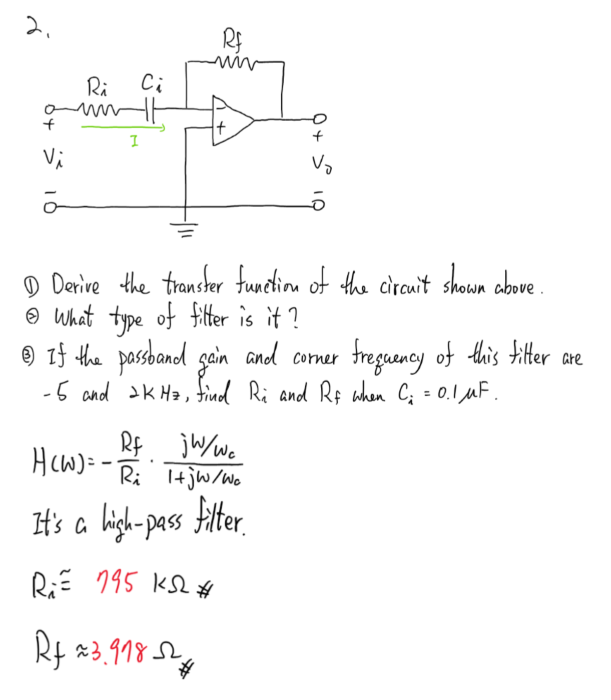 2.
Rf
Ri Ci
I
+ Vi -
- +
+ Vo -
① Derive the transfer function of the circuit shown above.
② What type of filter is it?
③ If the passband gain and corner frequency of this filter are
-5 and 2KHz, find Ri and Rf when Ci = 0.1μF.
H(W)= - Rf/Ri · (jW/Wc)/(1+jW/Wc)
It's a high-pass filter.
Ri ≅ 795 KΩ #
Rf ≈ 3.978 Ω #